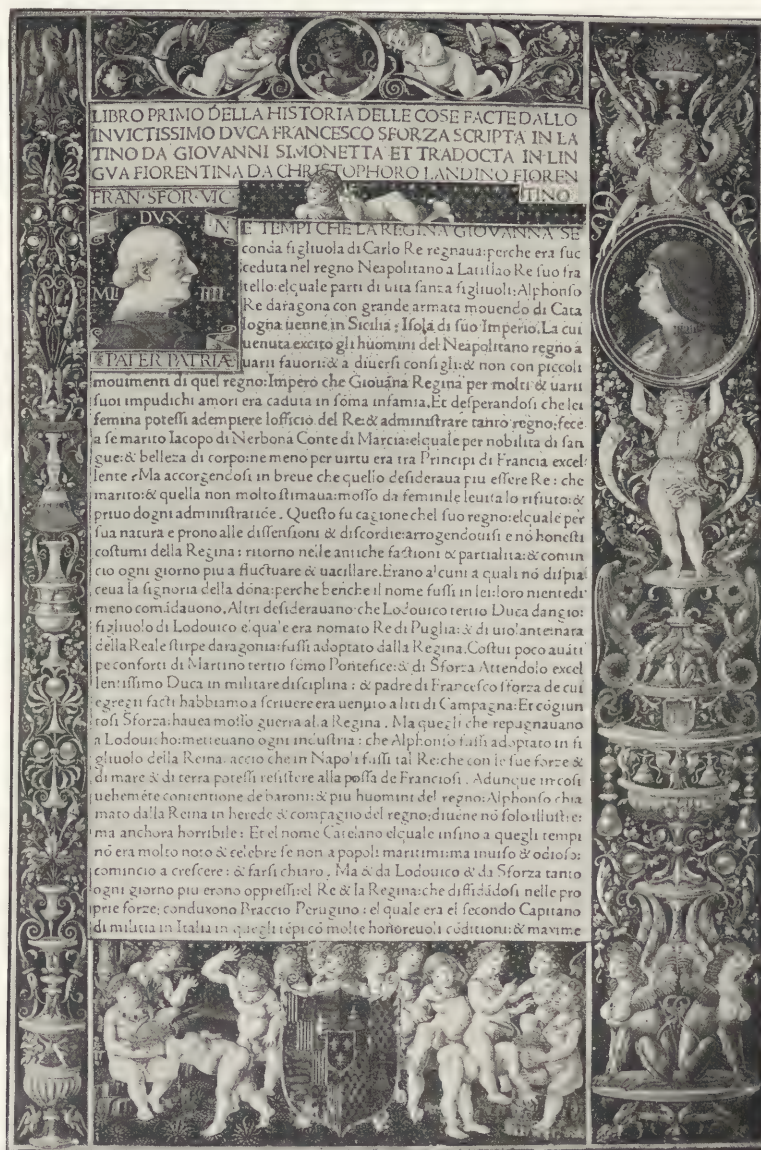 LIBRO PRIMO DELLA HISTORIA DELLE COSE FACTE DALLO
INVICTISSIMO DVCA FRANCESCO SFORZA SCRIPTA IN LA
TINO DA GIOVANNI SIMONETTA ET TRADOCTA IN LIN
GVA FIORENTINA DA CHRISTOPHORO LANDINO FIOREN
TINO
FRAN·SFOR·VIC
DVX
MLI IIII
PATER PATRIÆ
N
E TEMPI CHE LA REGINA GIOVANNA SE
conda figliuola di Carlo Re regnaua:perche era suc
ceduta nel regno Neapolitano a Latislao Re suo fra
tello:elquale parti di uita sanza figliuoli:Alphonso
Re daragona con grande armata mouendo di Cata
logna uenne in Sicilia: Isola di suo Imperio.La cui
uenuta excito gli huomini del Neapolitano regno a
uarii fauori:& a diuersi consigli:& non con piccoli
mouimenti di quel regno:Impero che Giouāna Regina per molti & uarii
suoi impudichi amori era caduta in soma infamia.Et desperandosi che lei
femina potessi adempiere lofficio del Re:& administrare tanto regno:fece
a se marito Iacopo di Nerbona Conte di Marcia:elquale per nobilita di san
gue:& belleza di corpo:ne meno per uirtu era tra Principi di Francia excel
lente:Ma accorgendosi in breue che quello desideraua piu essere Re: che
marito:& quella non molto stimaua:mosso da feminile leuita lo rifiuto:&
priuo dogni administratiōe. Questo fu cagione chel suo regno:elquale per
sua natura e prono alle dissensioni & discordie:arrogendouisi e nō honesti
costumi della Regina: ritorno nelle antiche factioni & partialita:& comin
cio ogni giorno piu a fluctuare & uacillare.Erano alcuni a quali nō dispia
ceua la signoria della dōna:perche benche il nome fussi in lei:loro nientedi
meno comādauono.Altri desiderauano che Lodouico tertio Duca dangio:
figliuolo di Lodouico elquale era nomato Re di Puglia:& di uiolante nata
della Reale stirpe daragonia:fussi adoptato dalla Regina.Costui poco auāti
pe conforti di Martino tertio sōmo Pontefice:& di Sforza Attendolo excel
lentissimo Duca in militare disciplina: & padre di Francesco sforza de cui
egregii facti habbiamo a scriuere era uenuto a liti di Campagna:Et cōgiun
tosi Sforza:hauea mosso guerra alla Regina. Ma quegli che repugnauano
a Lodouicho:metteuano ogni industria: che Alphonso fussi adoptato in fi
gliuolo della Reina:accio che in Napoli fussi tal Re:che con le sue forze &
di mare & di terra potessi resistere alla possa de Franciosi. Adunque in cosi
uehemēte contentione de baroni:& piu huomini del regno:Alphonso chia
mato dalla Reina in herede & compagno del regno:diuēne nō solo illustre:
ma anchora horribile: Et el nome Catelano elquale insino a quegli tempi
nō era molto noto & celebre se non a popoli maritimi:ma inuiso & odioso:
comincio a crescere: & farsi chiaro. Ma & da Lodouico & da Sforza tanto
ogni giorno piu erono oppressi:el Re & la Regina:che diffidādosi nelle pro
prie forze: conduxono Braccio Perugino: el quale era el secondo Capitano
di militia in Italia in quegli tēpi cō molte honoreuoli cōditioni:& maxime